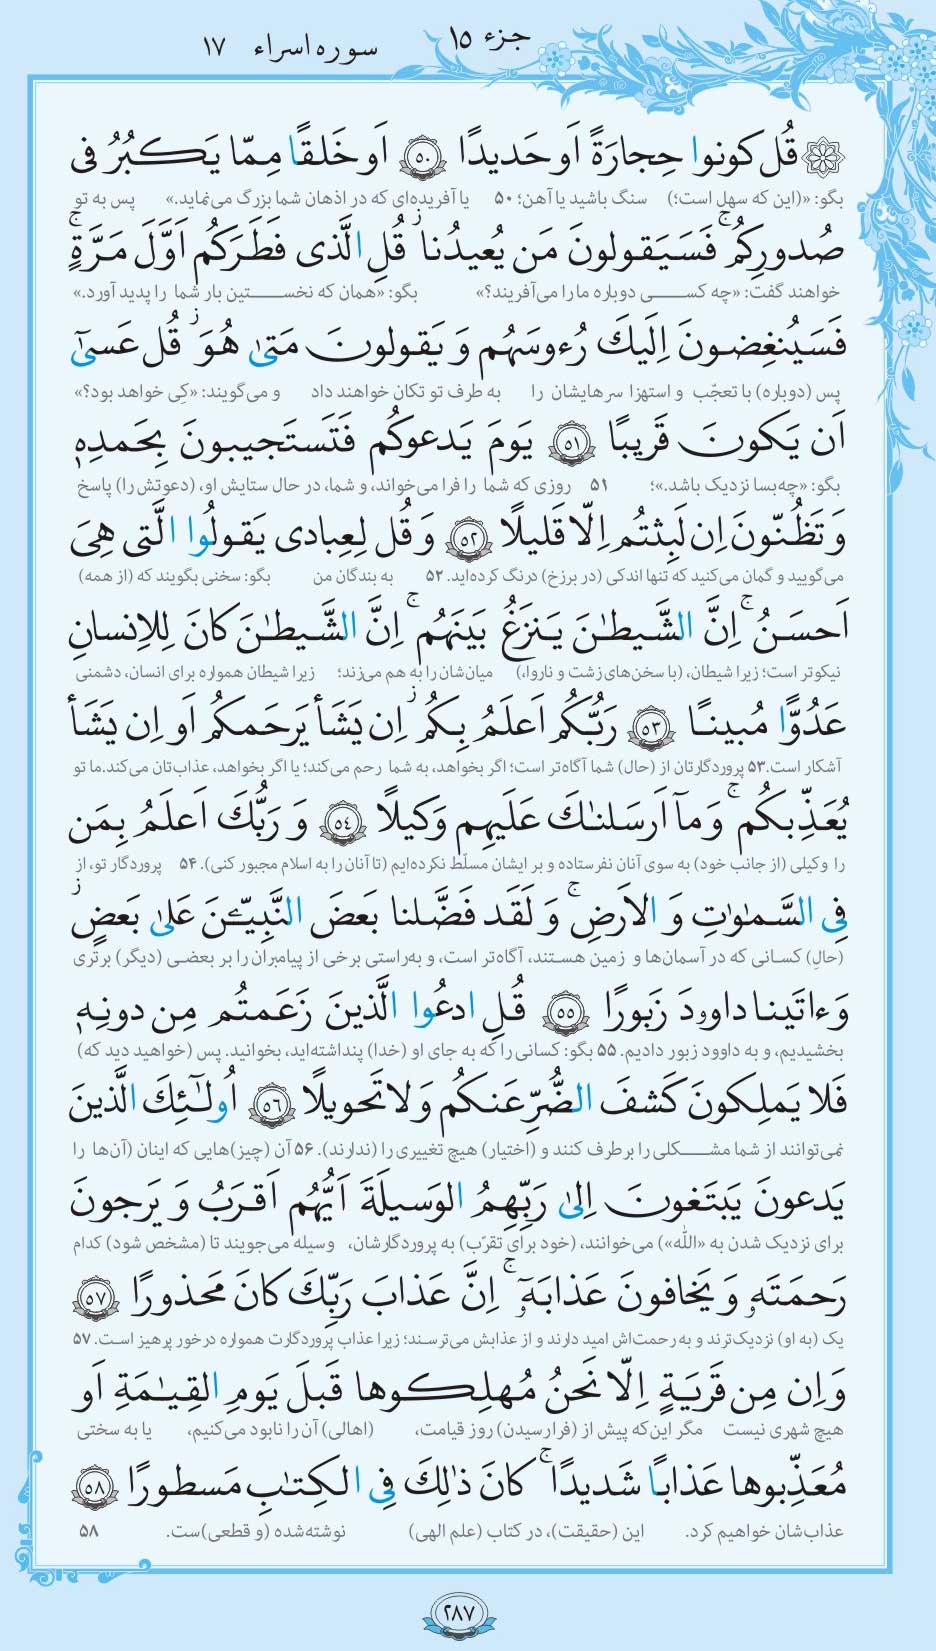 جزء ۱۵ سوره اسراء ۱۷
۞ قُل كونوا حِجارَةً اَو حَديدًا ﴿٥٠﴾ اَو خَلقًا مِمّا يَكبُرُ فى
بگو: «(این که سهل است؛) سنگ باشید یا آهن؛ ۵۰ یا آفریده‌ای که در اذهان شما بزرگ می‌نماید.» پس به تو
صُدورِكُم ۚ فَسَيَقولونَ مَن يُعيدُنا ۖ قُلِ الَّذى فَطَرَكُم اَوَّلَ مَرَّةٍ ۚ
خواهند گفت: «چه کسی دوباره ما را می‌آفریند؟» بگو: «همان که نخستین بار شما را پدید آورد.»
فَسَيُنغِضونَ اِلَيكَ رُءوسَهُم وَ يَقولونَ مَتىٰ هُوَ ۖ قُل عَسىٰٓ
پس (دوباره) با تعجّب و استهزا سرهایشان را به طرف تو تکان خواهند داد و می‌گویند: «کِی خواهد بود؟»
اَن يَكونَ قَريبًا ﴿٥١﴾ يَومَ يَدعوكُم فَتَستَجيبونَ بِحَمدِهٖ
بگو: «چه‌بسا نزدیک باشد.»؛ ۵۱ روزی که شما را فرا می‌خواند، و شما، در حال ستایش او، (دعوتش را) پاسخ
وَ تَظُنّونَ اِن لَبِثتُم اِلّا قَليلًا ﴿٥٢﴾ وَ قُل لِعِبادى يَقولُوا الَّتى هِىَ
می‌گویید و گمان می‌کنید که تنها اندکی (در برزخ) درنگ کرده‌اید. ۵۲ به بندگان من بگو: سخنی بگویند که (از همه)
اَحسَنُ ۚ اِنَّ الشَّيطٰنَ يَنزَغُ بَينَهُم ۚ اِنَّ الشَّيطٰنَ كانَ لِلاِنسانِ
نیکوتر است؛ زیرا شیطان، (با سخن‌های زشت و ناروا،) میان‌شان را به هم می‌زند؛ زیرا شیطان همواره برای انسان، دشمنی
عَدُوًّا مُبينًا ﴿٥٣﴾ رَبُّكُم اَعلَمُ بِكُم ۖ اِن يَشَأ يَرحَمكُم اَو اِن يَشَأ
آشکار است.۵۳ پروردگارتان از (حال) شما آگاه‌تر است؛ اگر بخواهد، به شما رحم می‌کند؛ یا اگر بخواهد، عذاب‌تان می‌کند.ما تو
يُعَذِّبكُم ۚ وَ مآ اَرسَلنٰكَ عَلَيهِم وَكيلًا ﴿٥٤﴾ وَ رَبُّكَ اَعلَمُ بِمَن
را وکیلی (از جانب خود) به سوی آنان نفرستاده و بر ایشان مسلّط نکرده‌ایم (تا آنان را به اسلام مجبور کنی). ۵۴ پروردگار تو، از
فِى السَّمٰوٰتِ وَ الاَرضِ ۚ وَ لَقَد فَضَّلنا بَعضَ النَّبِيّـٖنَ عَلىٰ بَعضٍ ۖ
(حالِ) کسانی که در آسمان‌ها و زمین هستند، آگاه‌تر است، و به‌راستی برخی از پیامبران را بر بعضی (دیگر) برتری
وَ ءاتَينا داوودَ زَبورًا ﴿٥٥﴾ قُلِ ادعُوا الَّذينَ زَعَمتُم مِن دونِهٖ
بخشیدیم، و به داوود زبور دادیم. ۵۵ بگو: کسانی را که به جای او (خدا) پنداشته‌اید، بخوانید. پس (خواهید دید که)
فَلا يَملِكونَ كَشفَ الضُّرِّ عَنكُم وَ لا تَحويلًا ﴿٥٦﴾ اُولٰٓئِكَ الَّذينَ
نمی‌توانند از شما مشکلی را برطرف کنند و (اختیار) هیچ تغییری را (ندارند). ۵۶ آن (چیز)هایی که اینان (آن‌ها را
يَدعونَ يَبتَغونَ اِلىٰ رَبِّهِمُ الوَسيلَةَ اَيُّهُم اَقرَبُ وَ يَرجونَ
برای نزدیک شدن به «الله») می‌خوانند، (خود برای تقرّب) به پروردگارشان، وسیله می‌جویند تا (مشخص شود) کدام
رَحمَتَهٗ وَ يَخافونَ عَذابَهٗٓ ۚ اِنَّ عَذابَ رَبِّكَ كانَ مَحذورًا ﴿٥٧﴾
یک (به او) نزدیک‌ترند و به رحمت‌اش امید دارند و از عذابش می‌ترسند؛ زیرا عذاب پروردگارت همواره درخور پرهیز است. ۵۷
وَ اِن مِن قَريَةٍ اِلّا نَحنُ مُهلِكوها قَبلَ يَومِ القِيٰمَةِ اَو
هیچ شهری نیست مگر این‌که پیش از (فرا رسیدن) روز قیامت، (اهالی) آن را نابود می‌کنیم، یا به سختی
مُعَذِّبوها عَذابًا شَديدًا ۚ كانَ ذٰلِكَ فِى الكِتٰبِ مَسطورًا ﴿٥٨﴾
عذاب‌شان خواهیم کرد. این (حقیقت)، در کتاب (علم الهی) نوشته‌شده (و قطعی)ست. ۵۸
۲۸۷